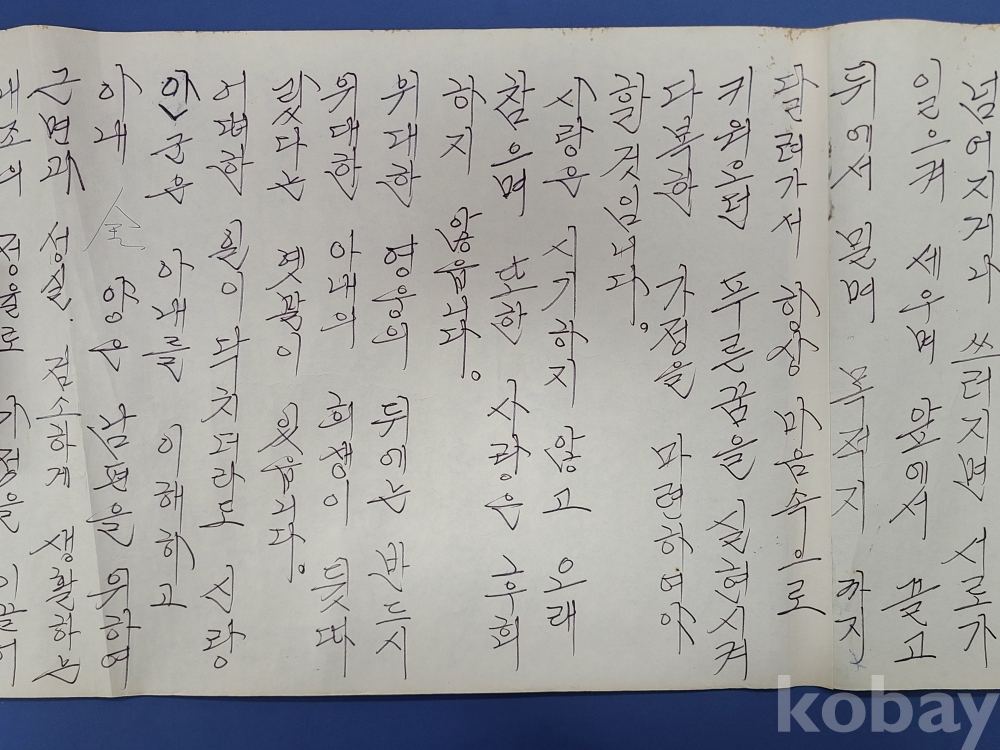 넘어지거나 쓰러지면 서로가
일으켜 세우며 앞에서 끌고
뒤에서 밀며 목적지 까지
달려가서 항상 마음속으로
키워오던 푸른꿈을 실현시켜
다복한 가정을 마련하여야
할것입니다.
사랑은 시기하지 않고 오래
참으며 또한 사랑은 후회
하지 않읍니다.
위대한 영웅의 뒤에는 반드시
위대한 아내의 희생이 뒷따
랐다는 옛말이 있읍니다.
어떠한 일이 닥치더라도 신랑
안군은 아내를 이해하고
아내 全 양은 남편을 위하여
근면과 성실. 검소하게 생활하는
내조의 가정을
kobay